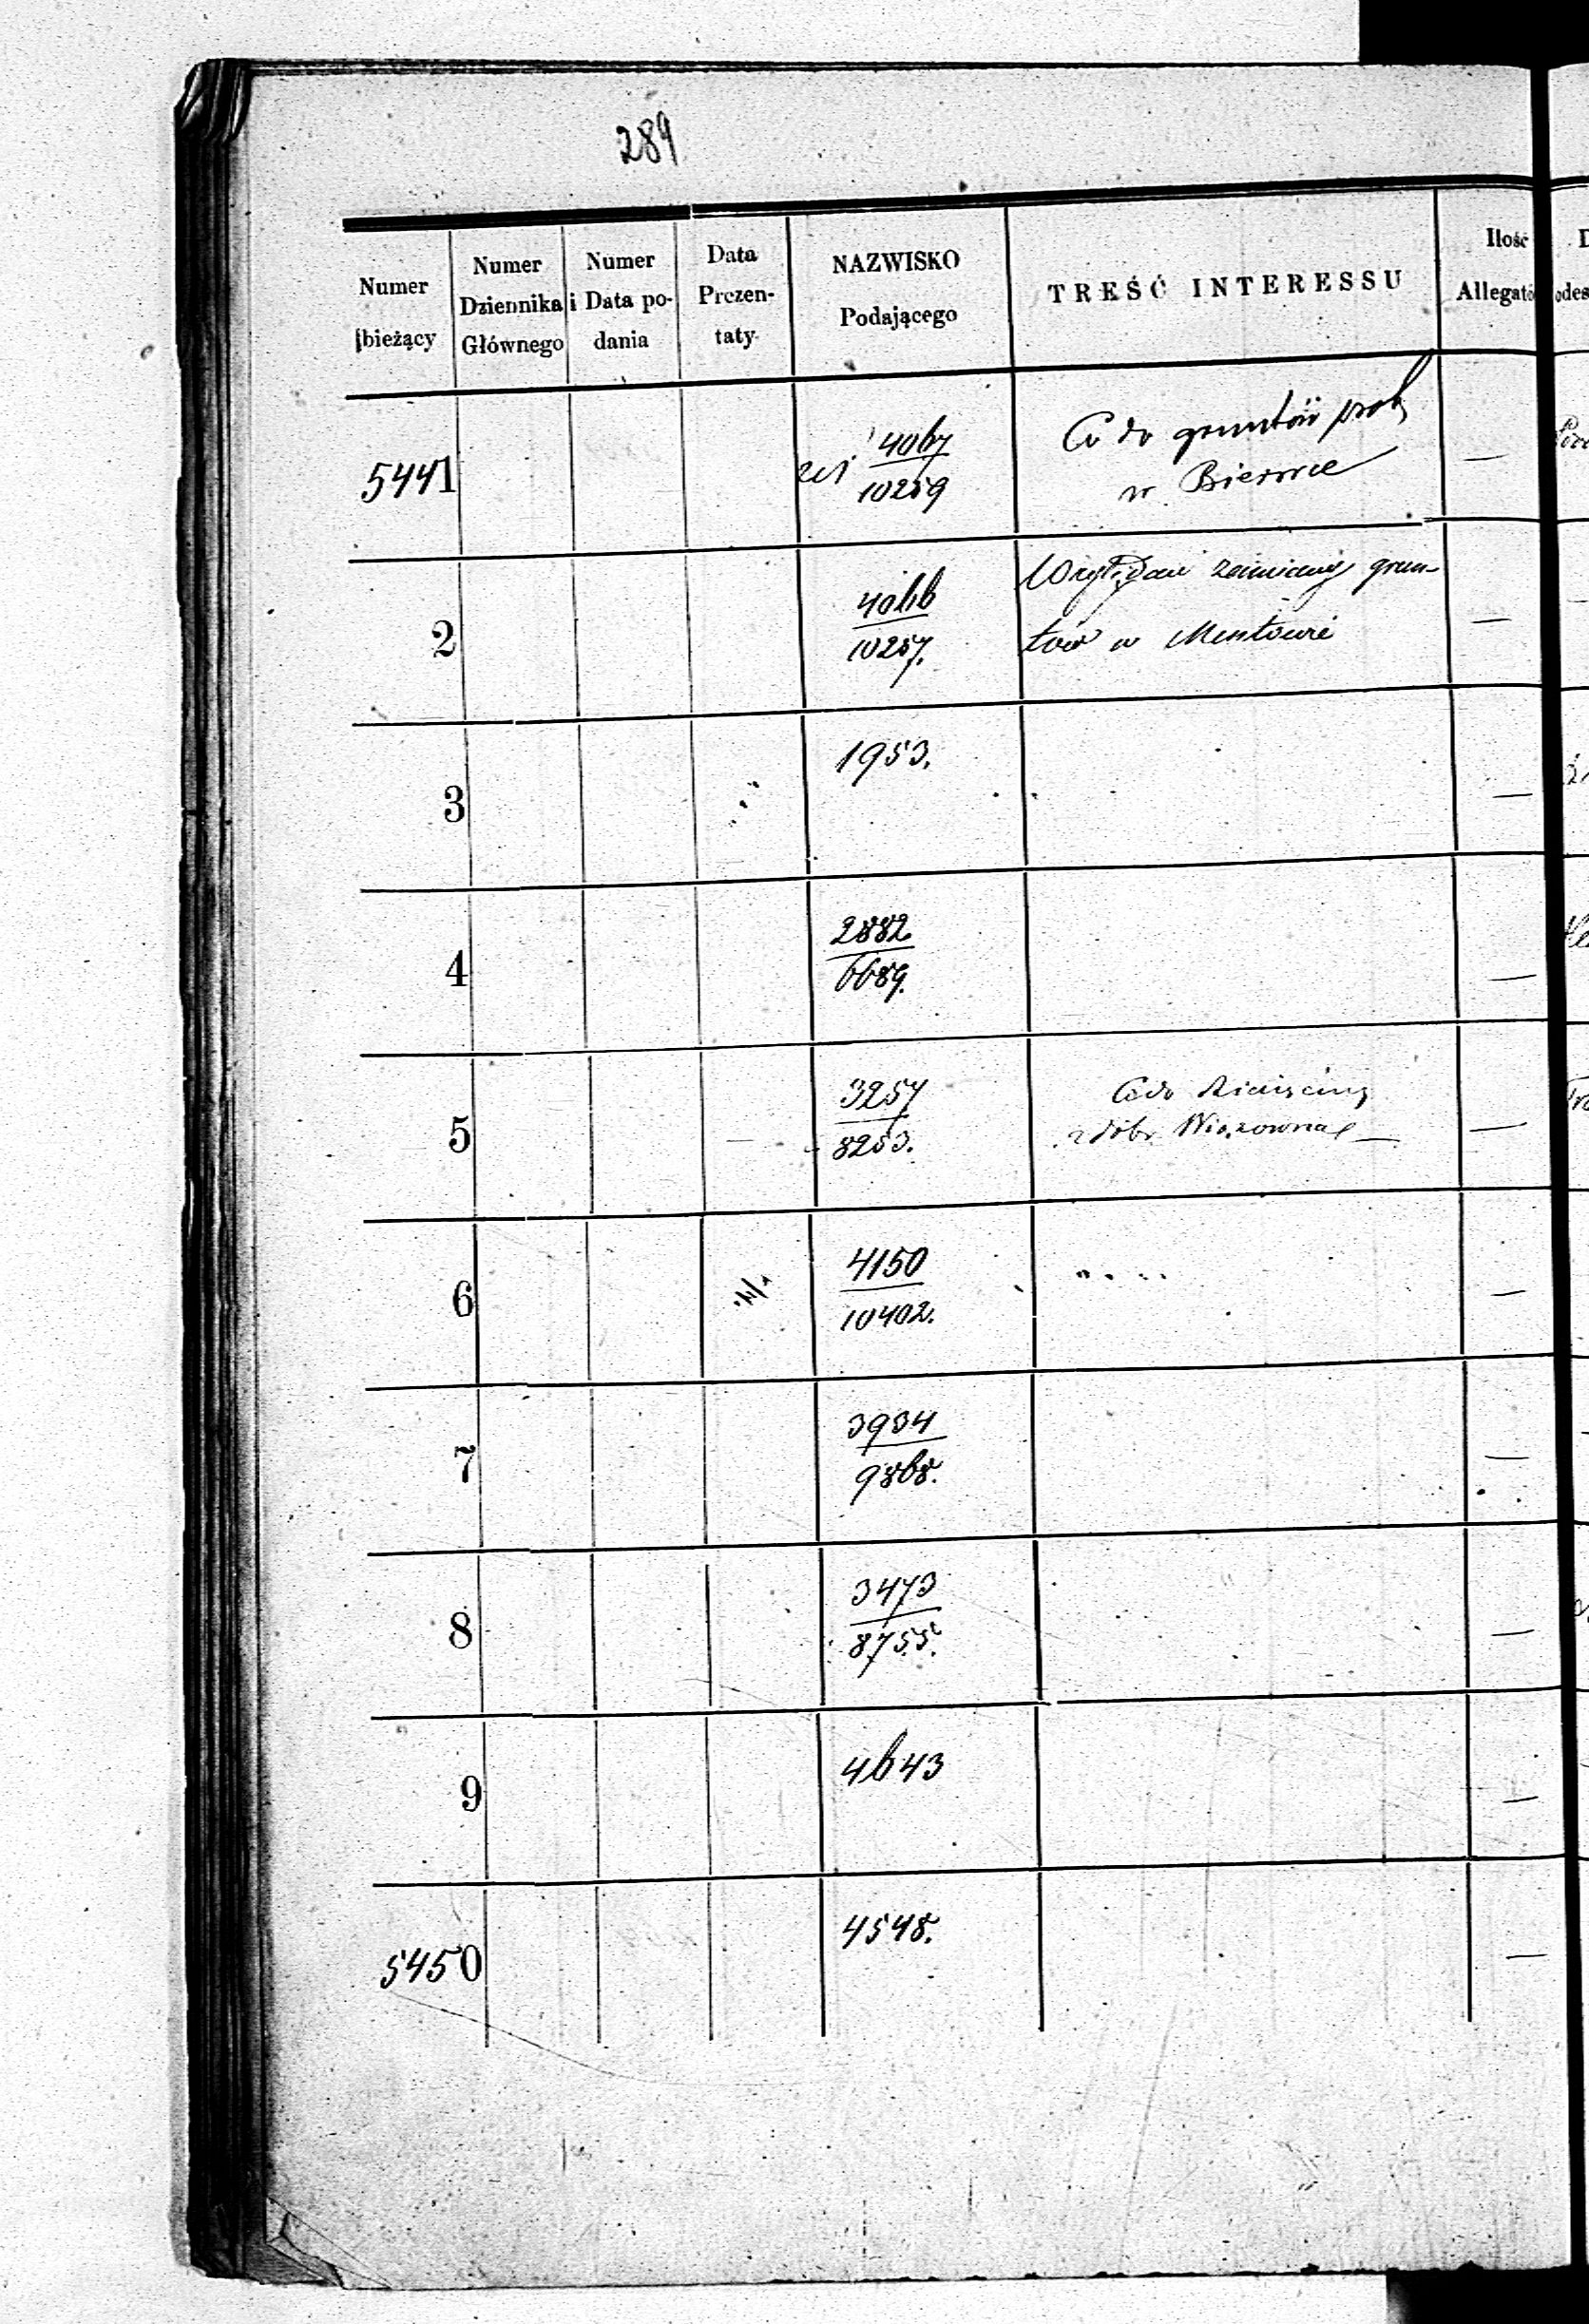 289
Numer bieżący
Numer Dziennika Głównego
Numer i Data podania
Data Prezentaty
NAZWISKO Podającego
TREŚĆ INTERESSU
Ilość
5441
4067
10259
Co do gruntów prob
w Bierwce
2
10257.
grun-
tów w
3
1953.
4
2882
6689.
5
3257
8253.
Co do
z dóbr Wiązowna
6
4150
10402.
7
3934
9868.
8
3473
8755.
9
4643
5450
4548.